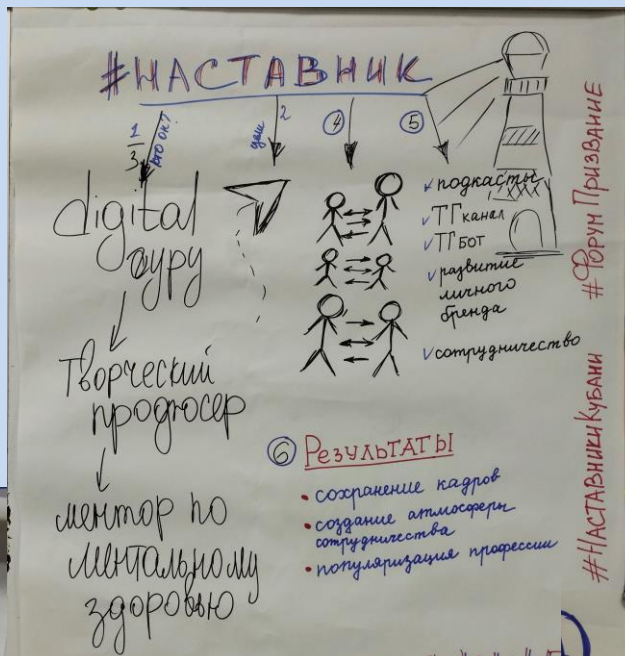 #НАСТАВНИК
1/3
кто он?
цели
2
④
⑤
digital
гуру
Творческий
продюсер
ментор по
ментальному
здоровью
подкасты
ТГ канал
ТГ БОТ
развитие
личного
бренда
сотрудничество
⑥ Результаты
• сохранение кадров
• создание атмосферы
сотрудничества
• популяризация профессии
#ФОРУМ ПРИЗВАНИЕ
#НАСТАВНИКИ КУБАНИ